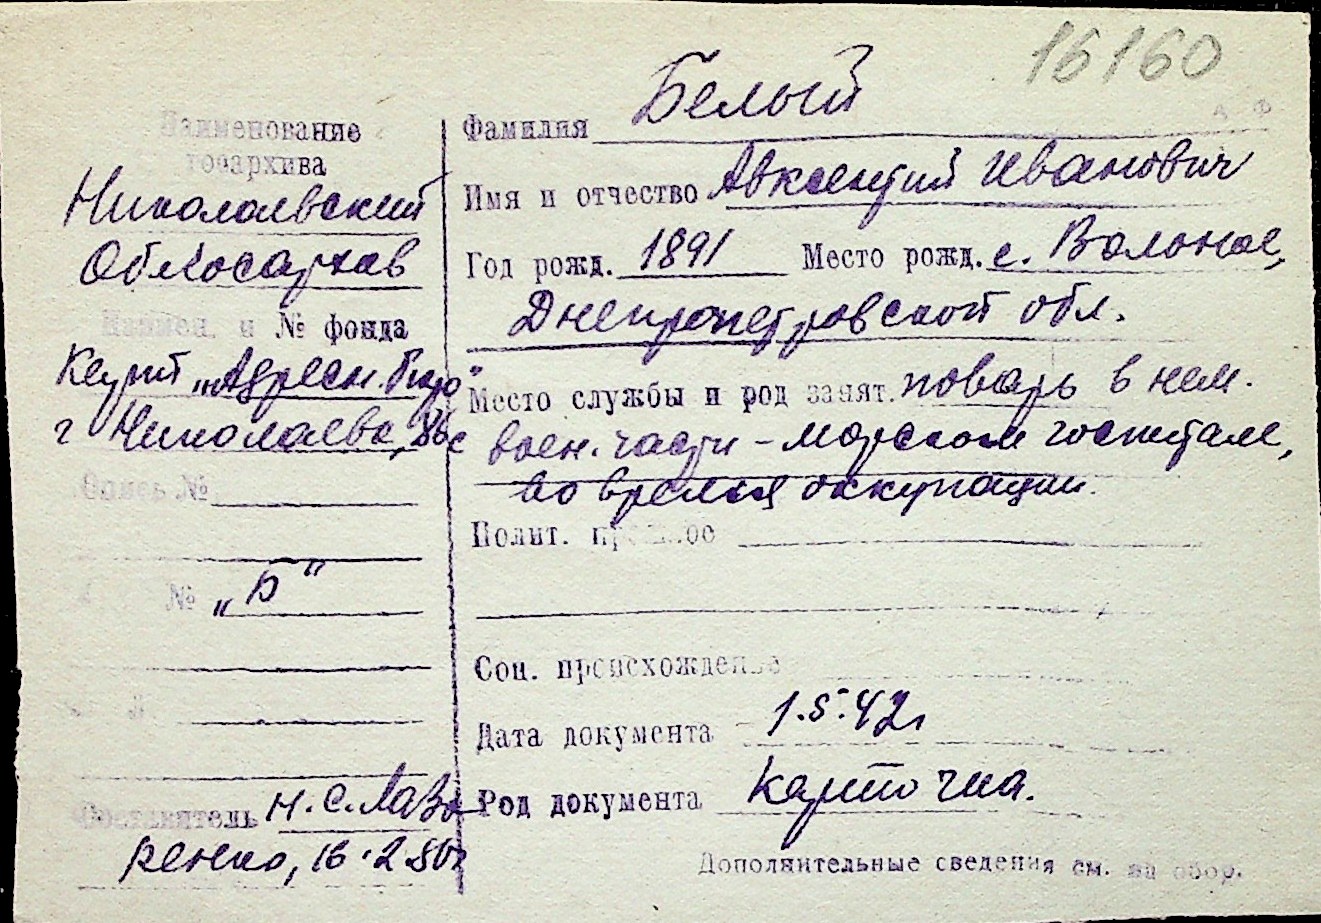 16160
Наименование
госархива
Николаевский
Облгосархив
Наимен. и № фонда
Картот. „Адресн. бюро"
г Николаева,
Опись №
№ „Б"
Составитель Н. С. Лавз-
ренко, 16.2.50г
Фамилия Белый
Имя и отчество Авксентий Иванович
Год рожд. 1891 Место рожд. с. Волоное,
Днепропетровской обл.
Место службы и род занят. поварь в нем.
воен. части – морском госпитале,
во время оккупации.
Полит. прошлое
Соц. происхождение
Дата документа 1.5.42г
Род документа карточка.
Дополнительные сведения см. на обор.